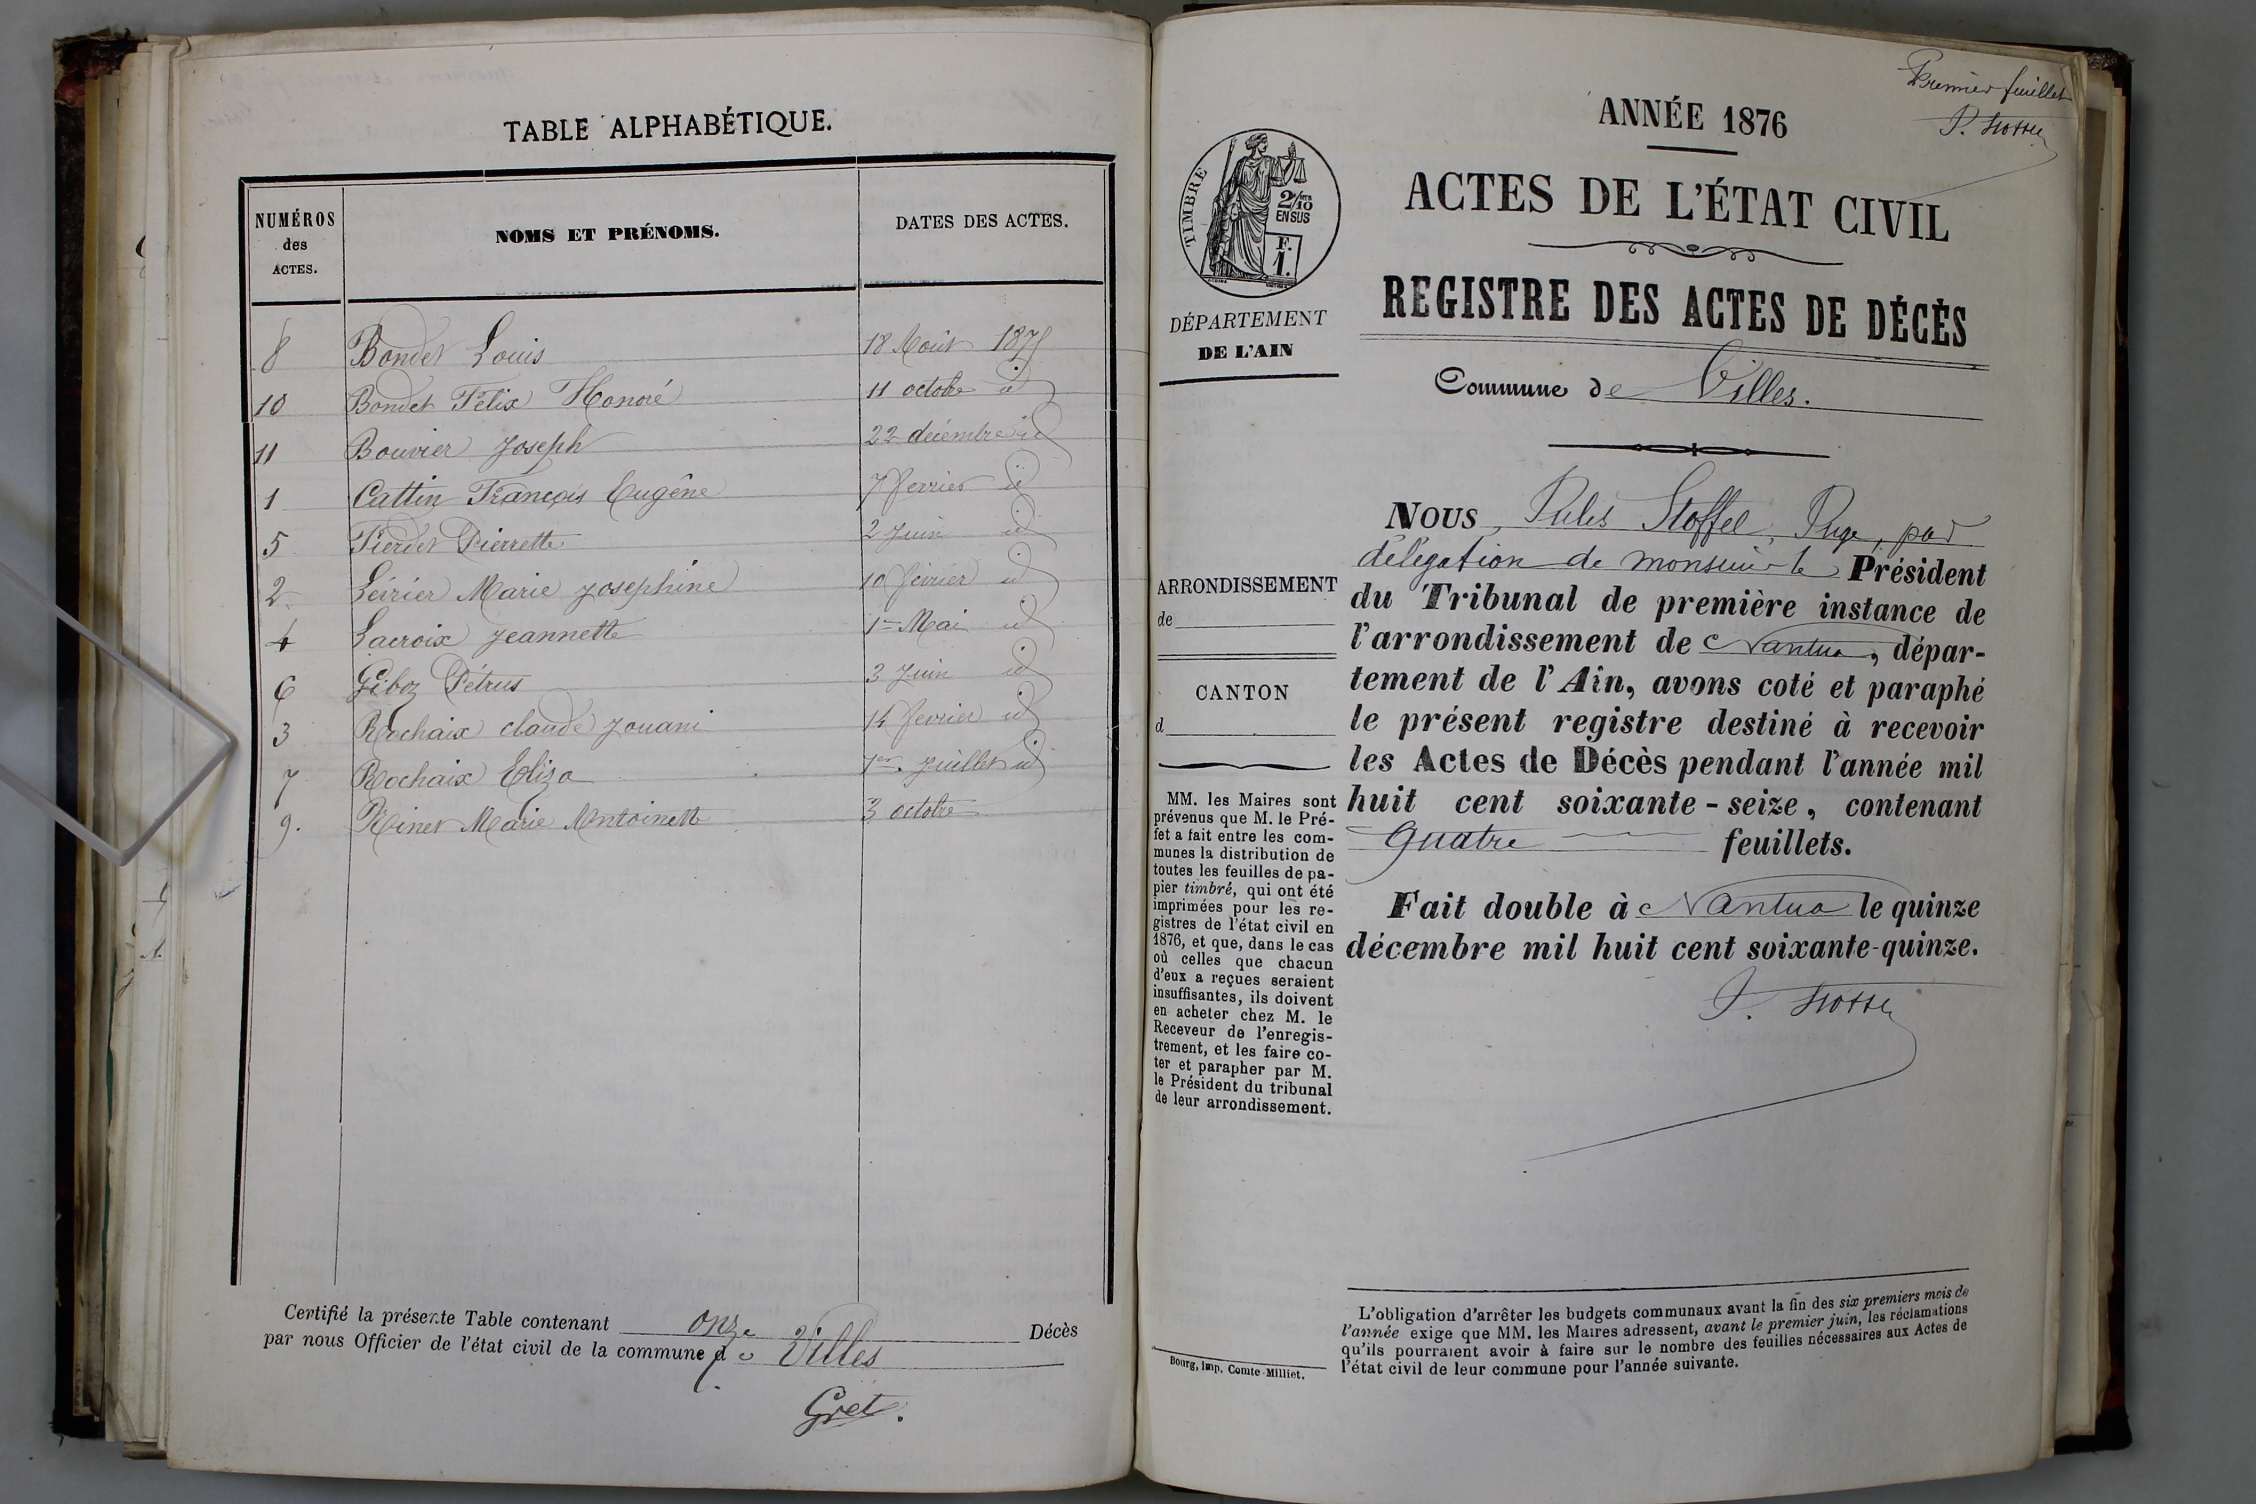 TABLE ALPHABÉTIQUE.
NUMÉROS des ACTES.
NOMS ET PRÉNOMS.
DATES DES ACTES.
8 Bondet Louis 18 Août 1875
10 Bondet Félix Honoré 11 octobre id
11 Bouvier Joseph 22 décembre id
1 Cattin François Eugène 7 fevrier id
5 Pierrette 2 Juin id
2 Marie Josephine 10 février id
4 Lacroix Jeannette 1er Mai id
6 Giboz Pétrus 3 Juin id
3 Rochaix claude Jouani 14 fevrier id
7 Rochaix Eliza 1er Juillet id
9. Rinet Marie Antoinette 3 octobre
Certifié la présente Table contenant onze Décès
par nous Officier de l'état civil de la commune de Villes
Gret.
Premier feuillet
ANNÉE 1876
ACTES DE L'ÉTAT CIVIL
REGISTRE DES ACTES DE DÉCÈS
Commune de Villes.
TIMBRE
2/10
EN SUS
F.
1.
DÉPARTEMENT
DE L'AIN
ARRONDISSEMENT
de
CANTON
d
MM. les Maires sont
prévenus que M. le Pré-
fet a fait entre les com-
munes la distribution de
toutes les feuilles de pa-
pier timbré, qui ont été
imprimées pour les re-
gistres de l'état civil en
1876, et que, dans le cas
où celles que chacun
d'eux a reçues seraient
insuffisantes, ils doivent
en acheter chez M. le
Receveur de l'enregis-
trement, et les faire co-
ter et parapher par M.
le Président du tribunal
de leur arrondissement.
Bourg, Imp. Comte-Milliet.
NOUS, Jules Stoffel, Juge, par
délégation de monsieur le Président
du Tribunal de première instance de
l'arrondissement de Nantua, dépar-
tement de l'Ain, avons coté et paraphé
le présent registre destiné à recevoir
les Actes de Décès pendant l'année mil
huit cent soixante-seize, contenant
quatre feuillets.
Fait double à Nantua le quinze
décembre mil huit cent soixante-quinze.
L'obligation d'arrêter les budgets communaux avant la fin des six premiers mois de
l'année exige que MM. les Maires adressent, avant le premier juin, les réclamations
qu'ils pourraient avoir à faire sur le nombre des feuilles nécessaires aux Actes de
l'état civil de leur commune pour l'année suivante.